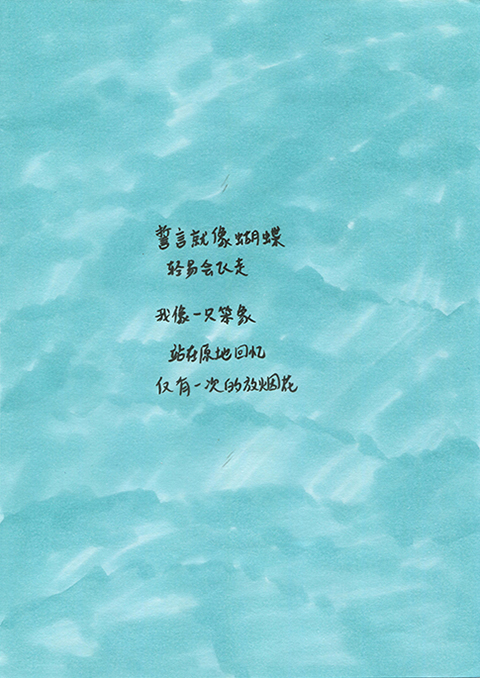 誓言就像蝴蝶
轻易会飞走
我像一只笨象
站在原地回忆
仅有一次的放烟花